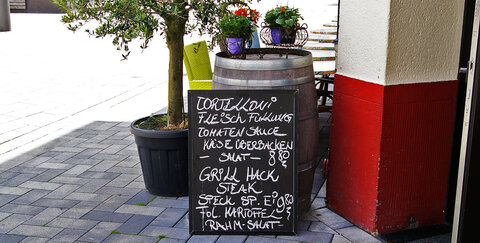 TORTELLONI
FLEISCH FÜLLUNG
TOMATEN SAUCE
KÄSE ÜBERBACKEN
- SALAT - 8 80
GRILL HACK
STEAK
SPECK SP. EI 9 80
FOL. KARTOFFEL
RAHM-SALAT